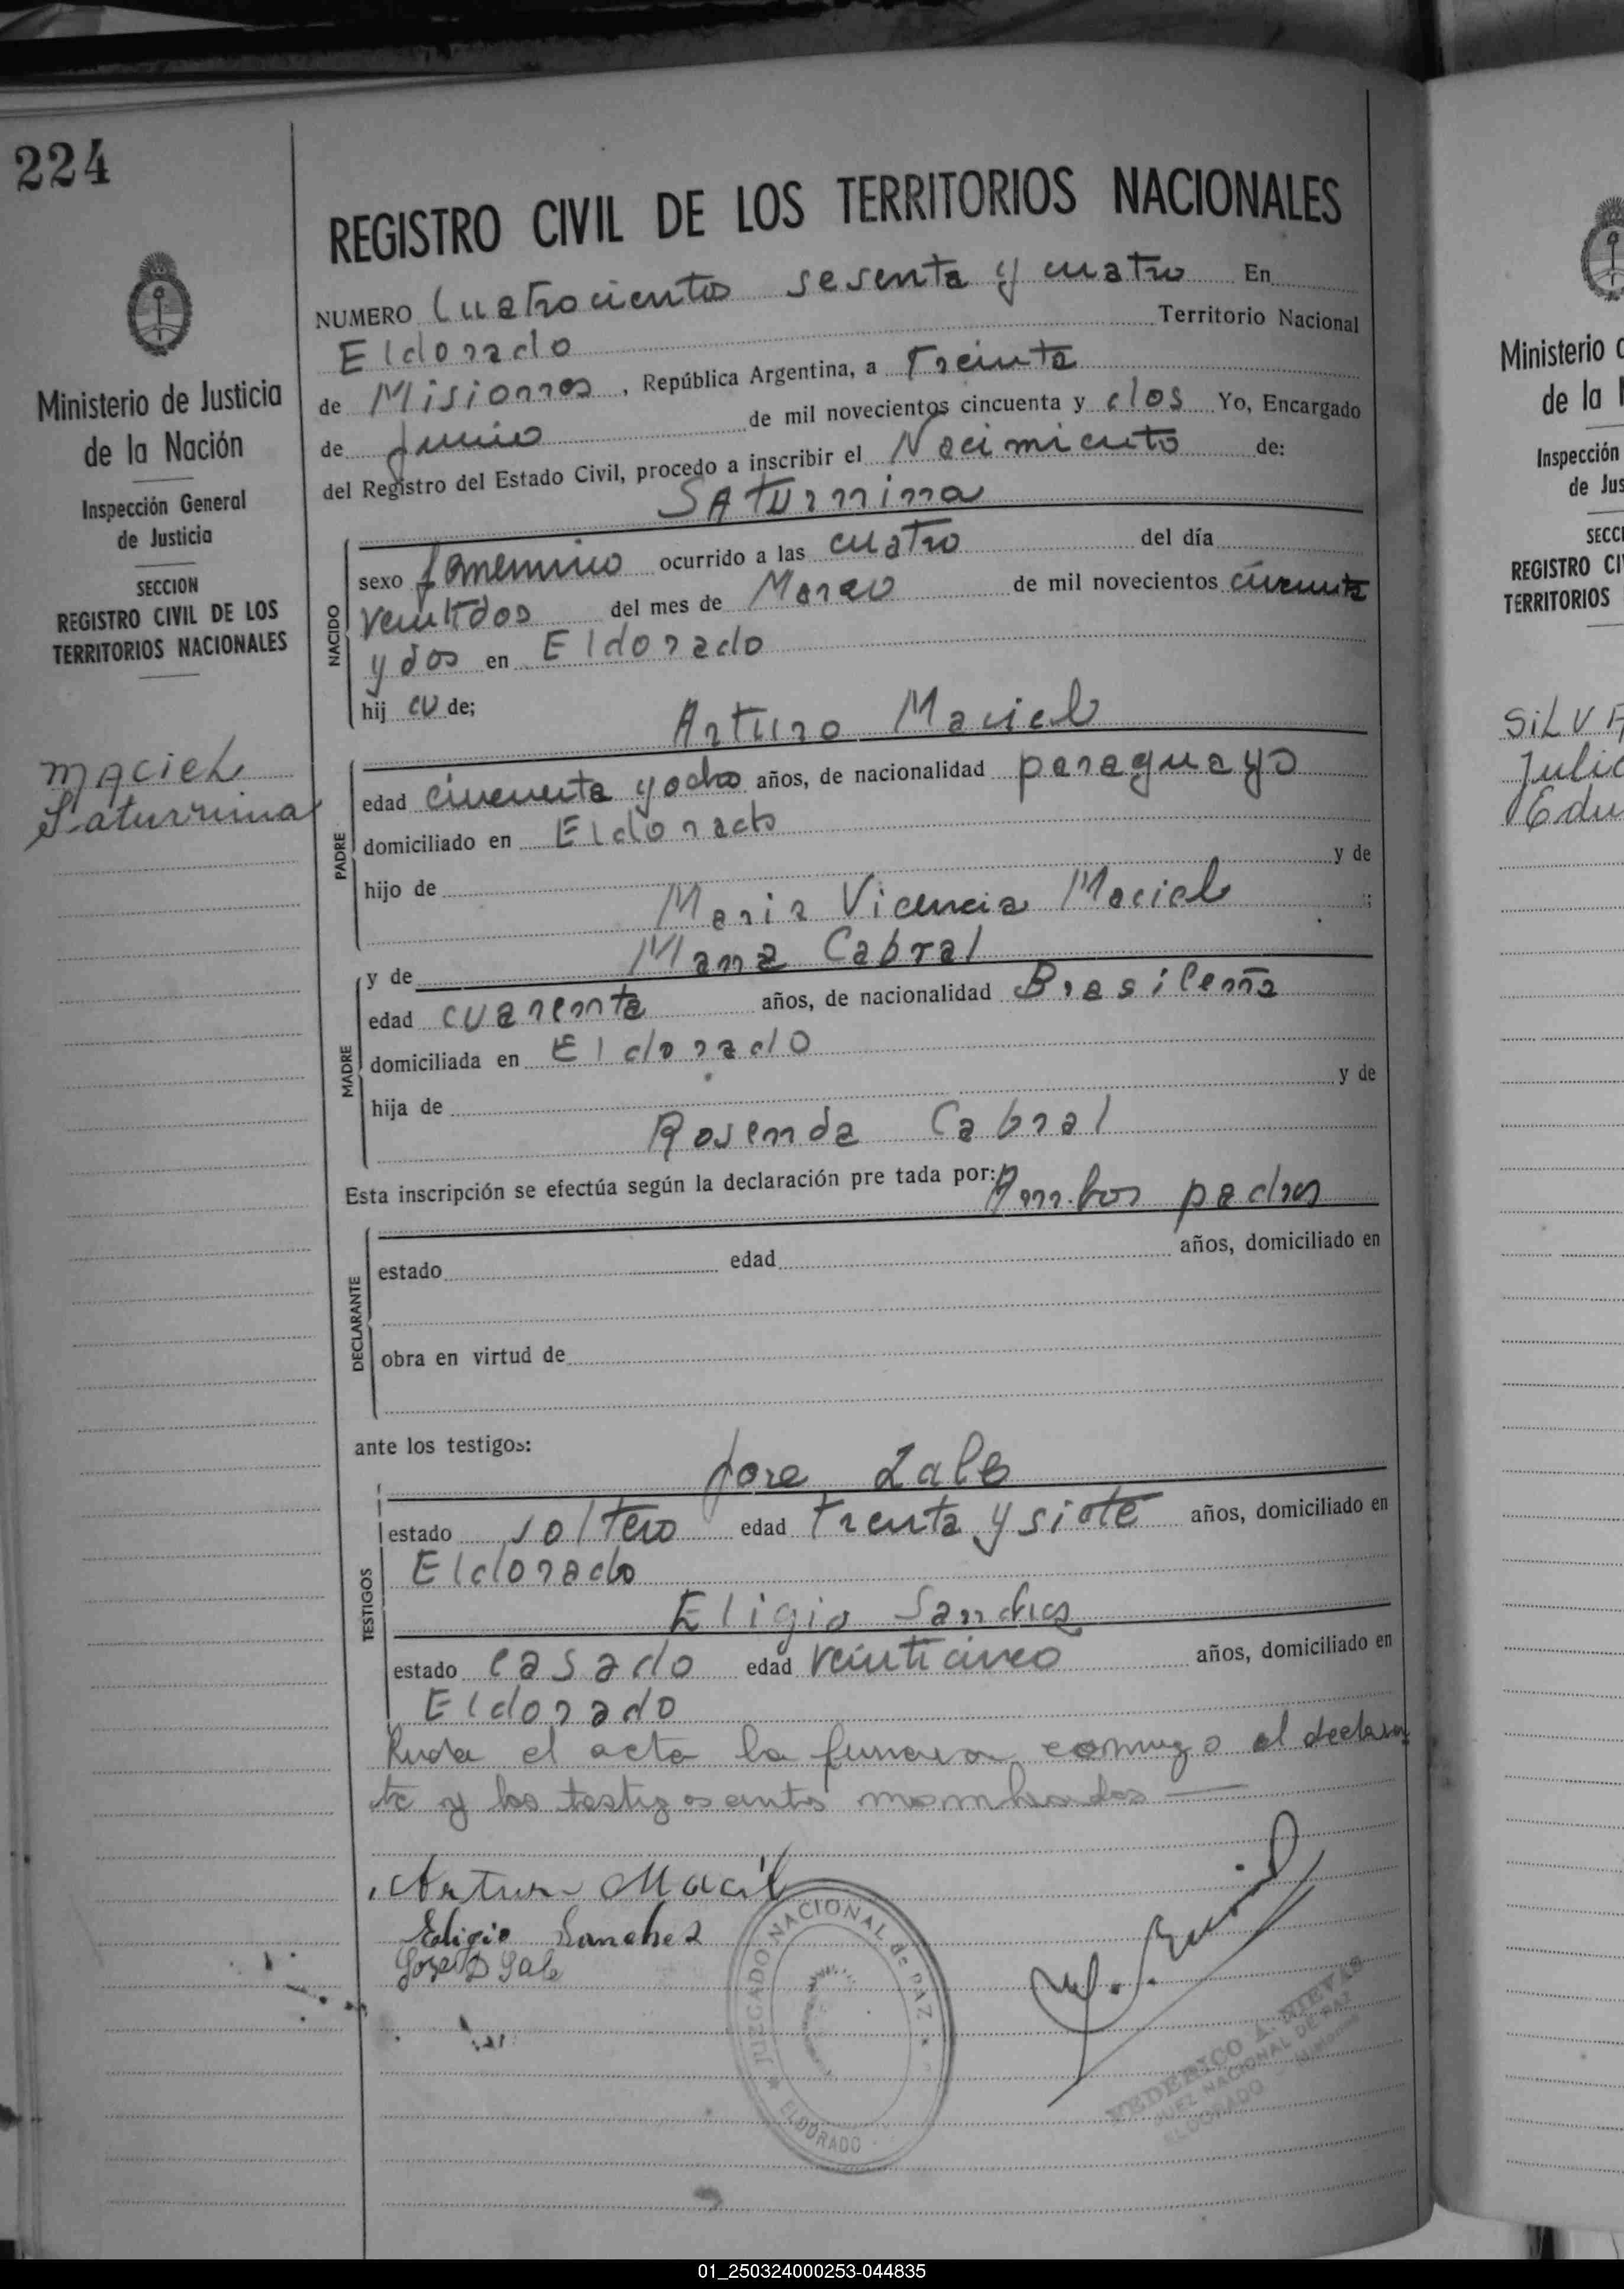 224
REGISTRO CIVIL DE LOS TERRITORIOS NACIONALES
NUMERO Cuatrocientos sesenta y cuatro En
Eldorado Territorio Nacional
de Misiones, República Argentina, a Treinta
de Junio de mil novecientos cincuenta y dos Yo, Encargado
del Registro del Estado Civil, procedo a inscribir el Nacimiento de:
SATurnina
NACIDO
sexo femenino ocurrido a las cuatro del día
veintidos del mes de Marzo de mil novecientos cincuenta
y dos en Eldorado
hij de;
Arturo Maciel
PADRE
edad cincuenta y ocho años, de nacionalidad paraguayo
domiciliado en Eldorado
hijo de y de
Maria Vicencia Maciel ;
y de Maria Cabral
MADRE
edad cuarenta años, de nacionalidad Brasileña
domiciliada en Eldorado
hija de y de
Rosenda Cabral
Esta inscripción se efectúa según la declaración pre tada por: Ambos padres
DECLARANTE
estado edad años, domiciliado en
obra en virtud de
ante los testigos:
Jose
TESTIGOS
estado soltero edad Treinta y siete años, domiciliado en
Eldorado
Eligio Sanches
estado casado edad veinticinco años, domiciliado en
Eldorado
el acta la conmigo el declaran
te y los testigos nombrados
Arturo Maciel
Eligio Sanchez
Jose
JUZGADO NACIONAL de PAZ
ELDORADO
FEDERICO A. NIEVAS
JUEZ NACIONAL DE PAZ
ELDORADO Misiones
Ministerio de Justicia
de la Nación
Inspección General
de Justicia
SECCION
REGISTRO CIVIL DE LOS
TERRITORIOS NACIONALES
MACIEL
Saturnina
Ministerio
de la
Inspección
de Jus
SECC
REGISTRO CI
TERRITORIOS
SILVA
Julio
Edu
01_250324000253-044835